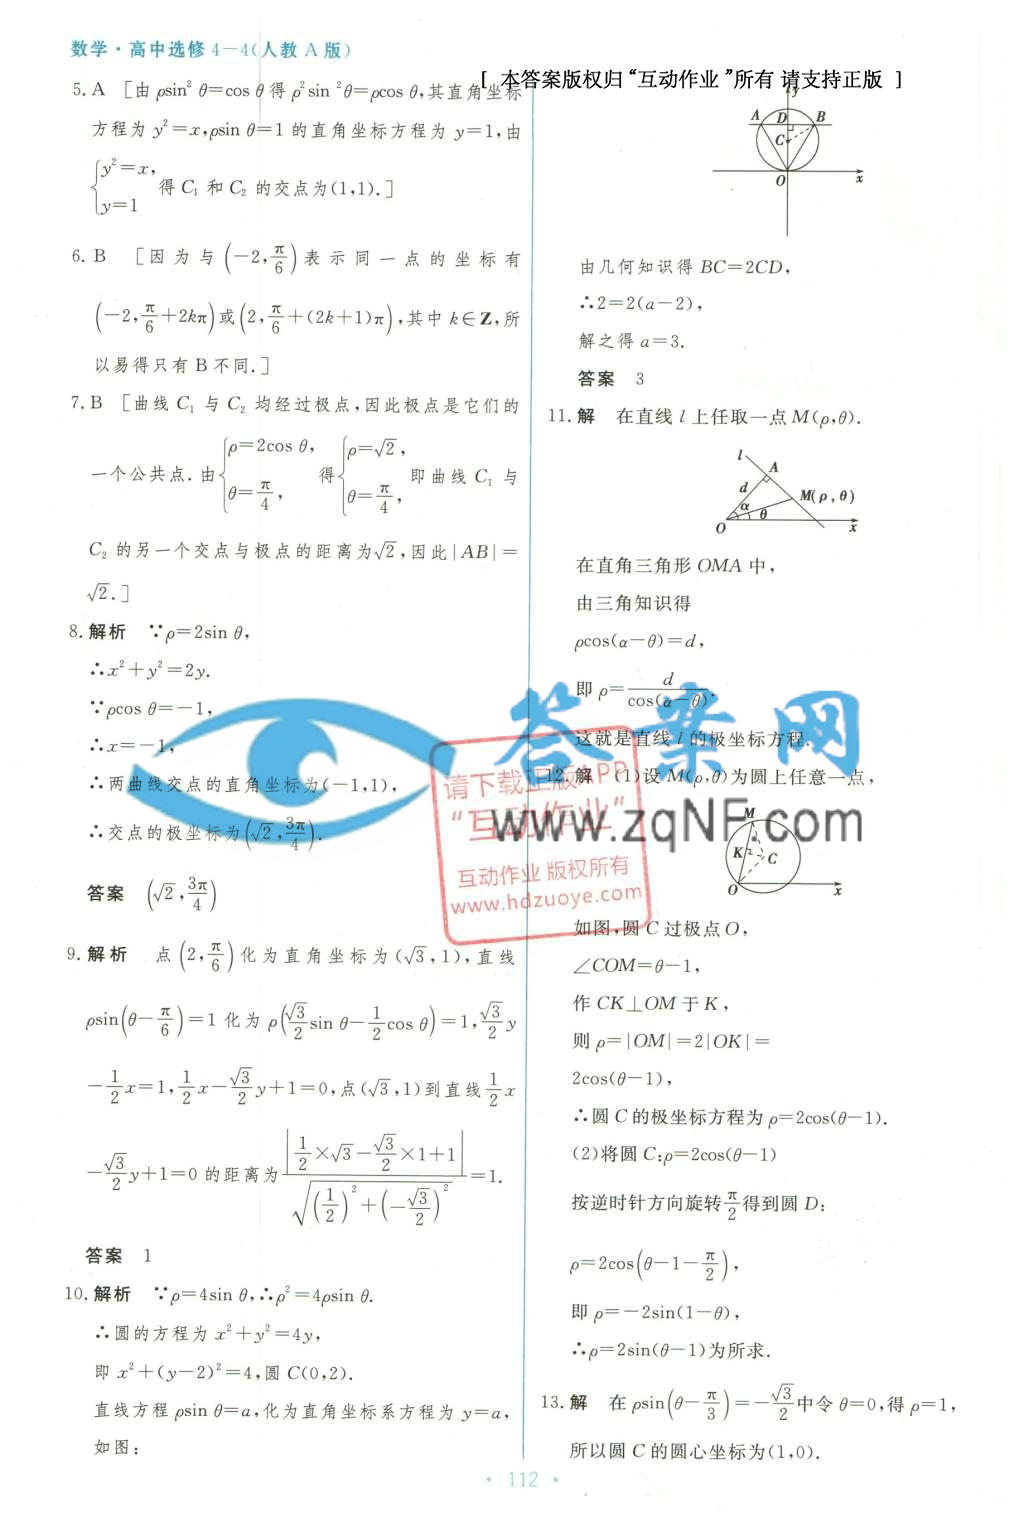 数学·高中选修4－4(人教A版)
[ 本答案版权归“互动作业”所有 请支持正版 ]
5. A [由ρsin²θ=cos θ得ρ²sin²θ=ρcos θ,其直角坐标
方程为y²=x,ρsin θ=1的直角坐标方程为y=1,由
{y²=x,
y=1
得C₁和C₂的交点为(1,1).]
6. B [因为与(-2,π/6)表示同一点的坐标有
(-2,π/6+2kπ)或(2,π/6+(2k+1)π),其中k∈Z,所
以易得只有B不同.]
7. B [曲线C₁与C₂均经过极点,因此极点是它们的
一个公共点.由{ρ=2cos θ, θ=π/4, 得{ρ=√2, θ=π/4, 即曲线C₁与
C₂的另一个交点与极点的距离为√2,因此|AB|=
√2.]
8. 解析 ∵ρ=2sin θ,
∴x²+y²=2y.
∵ρcos θ=-1,
∴x=-1,
∴两曲线交点的直角坐标为(-1,1),
∴交点的极坐标为(√2,3π/4).
答案 (√2,3π/4)
9. 解析 点(2,π/6)化为直角坐标为(√3,1),直线
ρsin(θ-π/6)=1化为ρ(√3/2 sin θ-1/2 cos θ)=1,√3/2 y
-1/2 x=1,1/2 x-√3/2 y+1=0,点(√3,1)到直线1/2 x
-√3/2 y+1=0的距离为|1/2×√3-√3/2×1+1|/√((1/2)²+(-√3/2)²)=1.
答案 1
10. 解析 ∵ρ=4sin θ,∴ρ²=4ρsin θ.
∴圆的方程为x²+y²=4y,
即x²+(y-2)²=4,圆C(0,2).
直线方程ρsin θ=a,化为直角坐标系方程为y=a,
如图:
y
A D B
C
O x
由几何知识得BC=2CD,
∴2=2(a-2),
解之得a=3.
答案 3
11. 解 在直线l上任取一点M(ρ,θ).
l
A
d
M(ρ,θ)
α θ
O x
在直角三角形OMA中,
由三角知识得
ρcos(α-θ)=d,
即ρ=d/cos(α-θ).
这就是直线l的极坐标方程.
12. 解 (1)设M(ρ,θ)为圆上任意一点,
M
K C
O x
如图,圆C过极点O,
∠COM=θ-1,
作CK⊥OM于K,
则ρ=|OM|=2|OK|=
2cos(θ-1),
∴圆C的极坐标方程为ρ=2cos(θ-1).
(2)将圆C:ρ=2cos(θ-1)
按逆时针方向旋转π/2得到圆D:
ρ=2cos(θ-1-π/2),
即ρ=-2sin(1-θ),
∴ρ=2sin(θ-1)为所求.
13. 解 在ρsin(θ-π/3)=-√3/2中令θ=0,得ρ=1,
所以圆C的圆心坐标为(1,0).
答案网
www.zqNF.com
请下载正版APP
“互动作业”
互动作业 版权所有
www.hdzuoye.com
· 112 ·